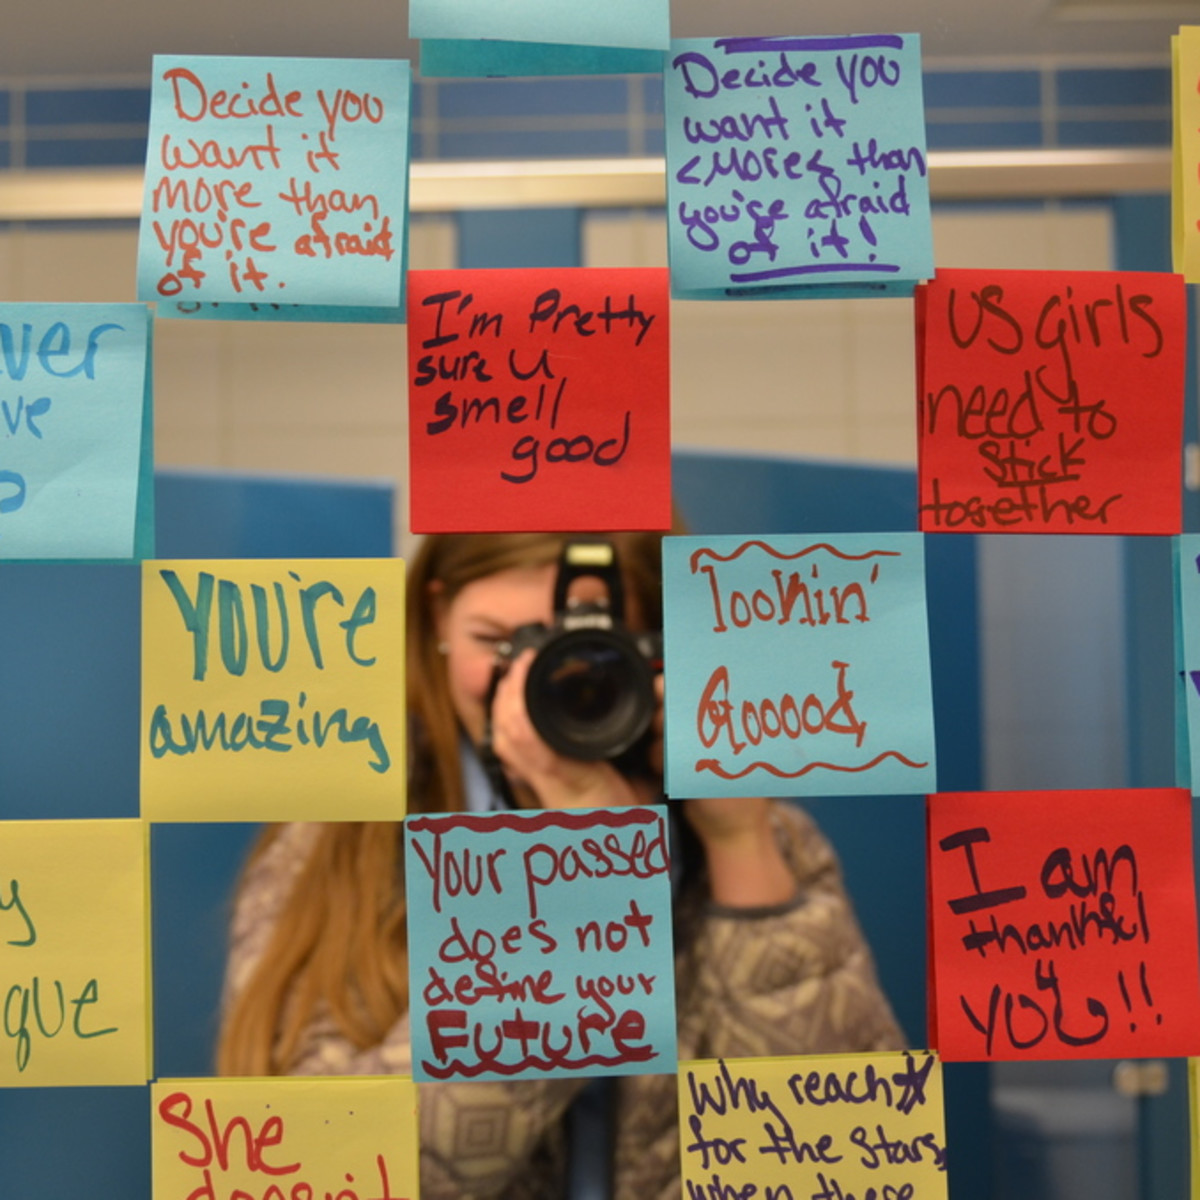 Decide you
want it
more than
you're afraid
of it.
Decide you
want it
<more< than
you're afraid
of it!
ver
ve
I'm Pretty
sure u
smell
good
US girls
need to
stick
together
You're
amazing
lookin'
Gooood
y
que
Your passed
does not
define your
Future
I am
thankful
4
YOU!!
She
doesn't
Why reach
for the stars,
when there